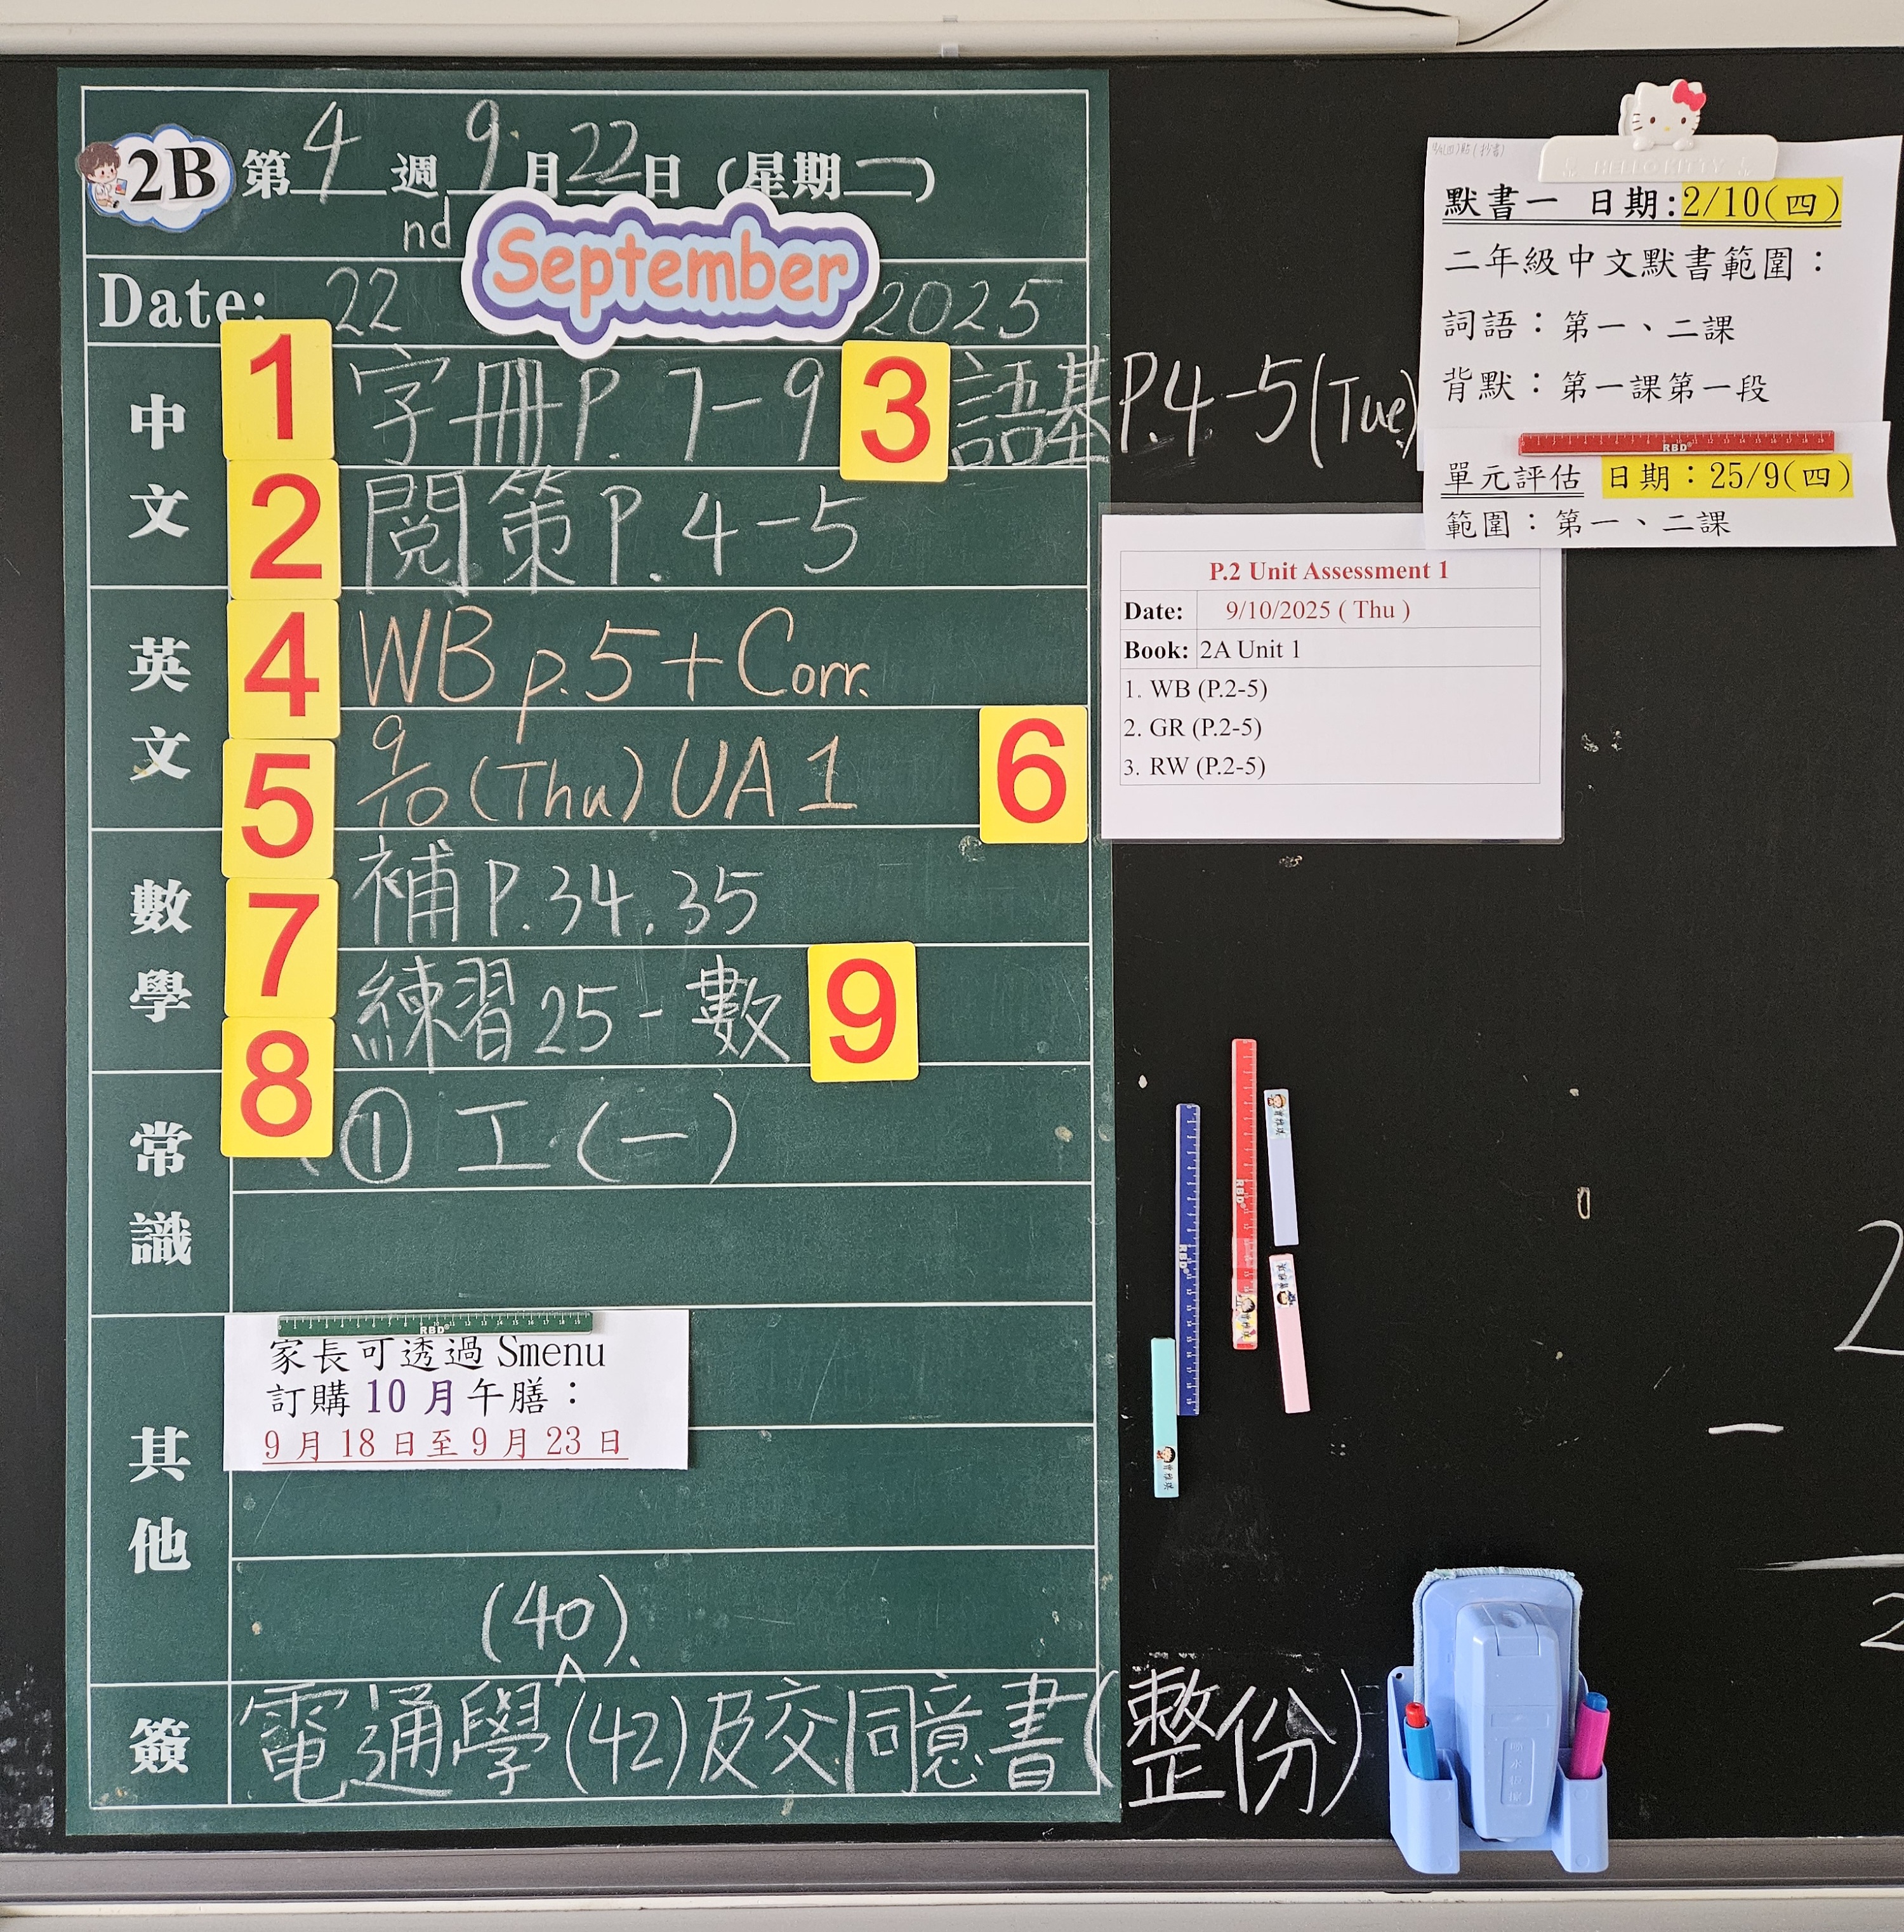 2B 第 4 週 9 月 22 日 (星期一)
nd
Date: 22 September 2025
中文
1 字冊P. 7-9 3 語基P.4-5(Tue)
2 閱策P. 4-5
英文
4 WB p.5 + Corr.
5 9/10 (Thu) UA 1 6
數學
補P.34.35
7 練習25-數 9
常識
8 ① 工(一)
其他
RBD
家長可透過 Smenu
訂購 10 月午膳：
9 月 18 日至 9 月 23 日
(40)
簽
電通學(42)及交同意書(整份)
HELLO KITTY
默書一 日期:2/10(四)
二年級中文默書範圍：
詞語：第一、二課
背默：第一課第一段
RBD
單元評估 日期：25/9(四)
範圍：第一、二課
P.2 Unit Assessment 1
Date: 9/10/2025 ( Thu )
Book: 2A Unit 1
1. WB (P.2-5)
2. GR (P.2-5)
3. RW (P.2-5)
RBD
RBD
2
2